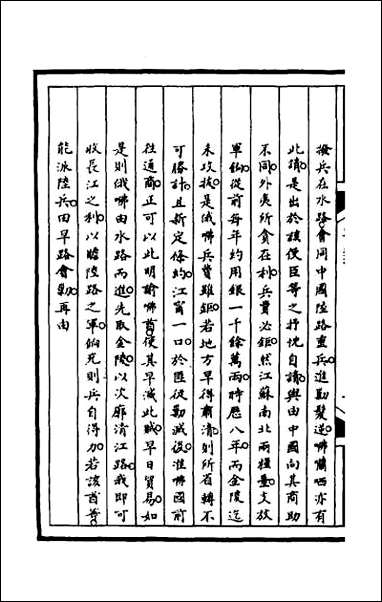 撥兵在水路會同中國陸路重兵進勦髮逆唎囒哂亦有
此請是出於該使臣等之抒忱自請與由中國向其商助
不同外夷所貪在利兵費必鉅然江蘇南北兩糧臺支放
軍餉從前每年約用銀一千餘萬兩時歷八年而金陵迄
未攻拔是俄唎兵費雖鉅若地方早得肅清則所省轉不
可勝計且新定條約江甯一口於匪徒勦滅後准唎國前
往通商正可以此明諭唎酋使其早滅此賊早日貿易如
是則俄唎由水路而進先取金陵以次廓清江路我即可
收長江之利以贍陸路之軍餉充則兵自得力若該酋等
能派陸兵由旱路會勦再由